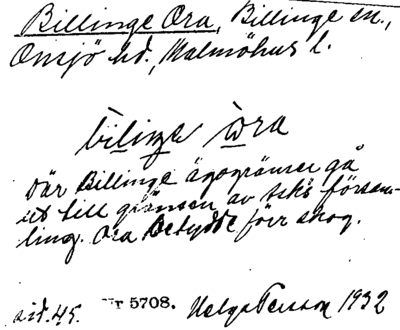 Billinge Ora, Billinge sn.,
Onsjö hd., Malmöhus l.
bìliŋe òra
där Billinge ägogränser gå
ut till gränsen av Asks försam-
ling. Ora betydde förr skog.
sid. 45. Nr 5708. Helge Persson 1932